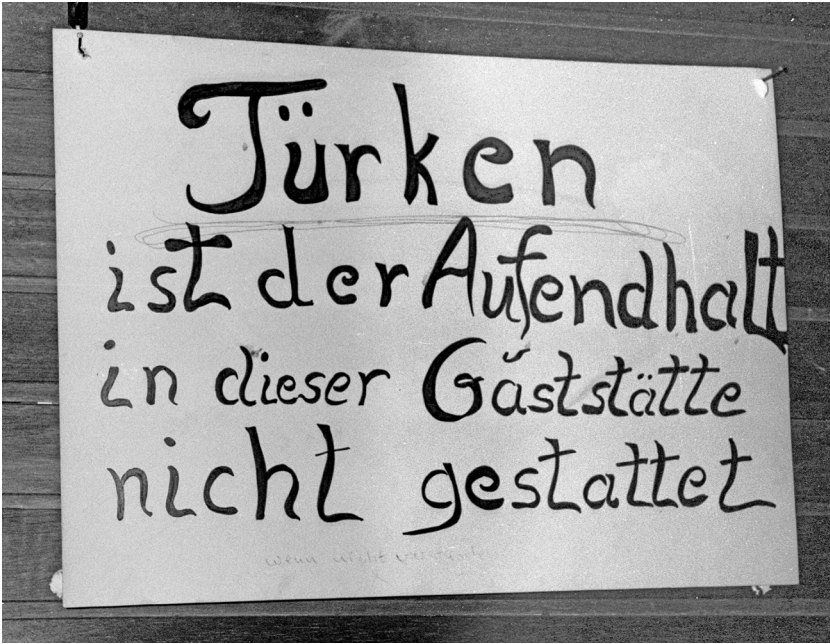 Türken
ist der Aufendhalt
in dieser Gäststätte
nicht gestattet
wenn nicht